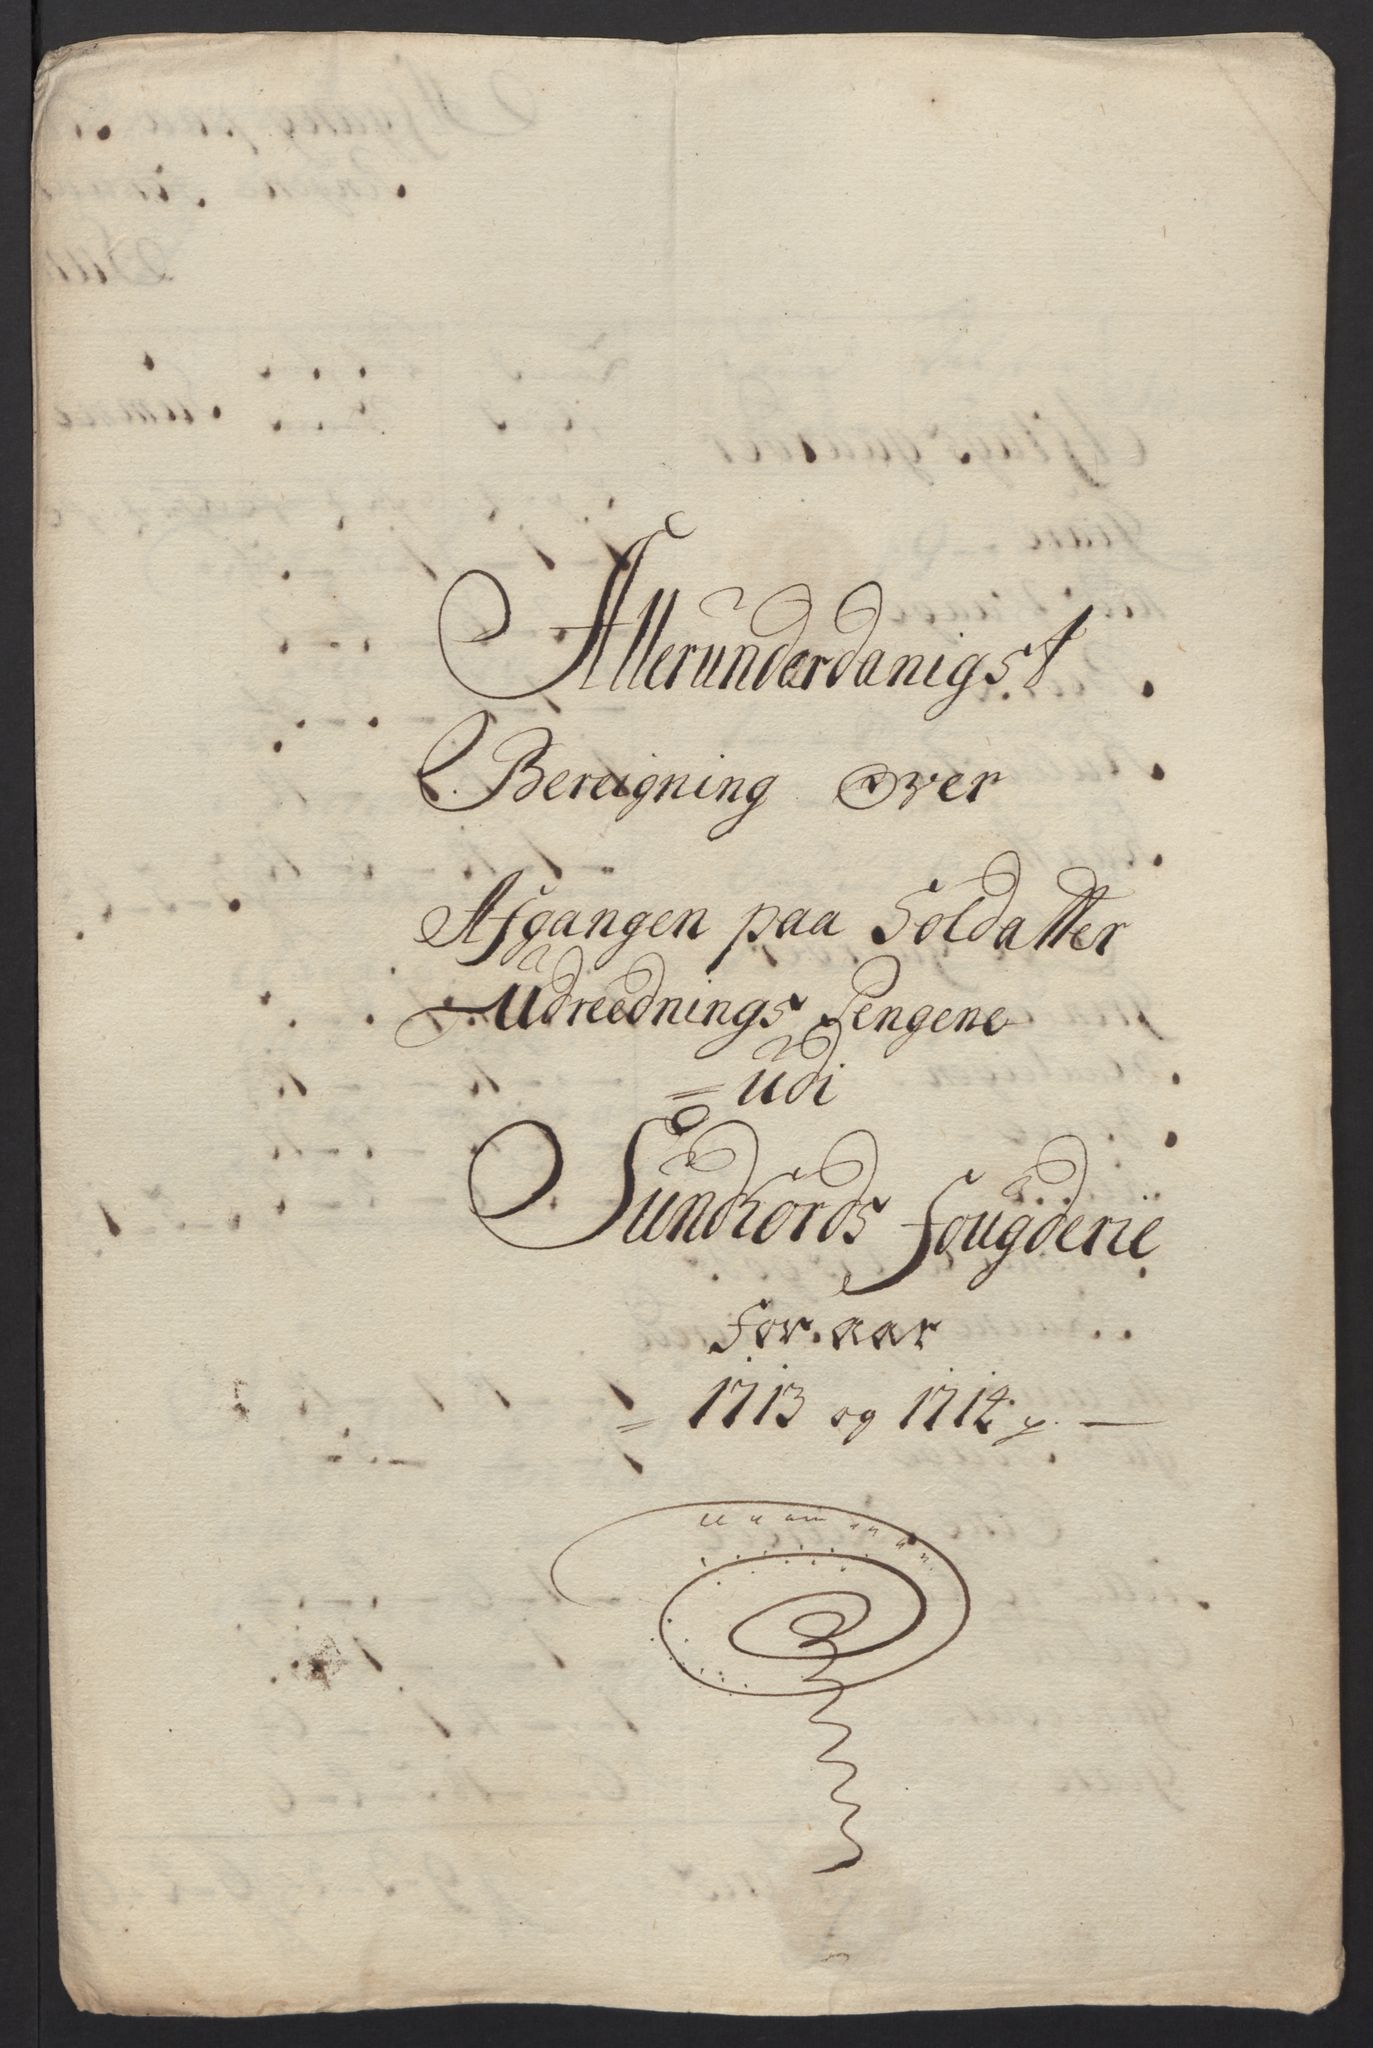 Allerunderdanigst
Bereigning over
Afgangen paa Soldatter
Udreednings Pengene
= udi
Sundhords Fougderie
for aar
= 1713 og 1714